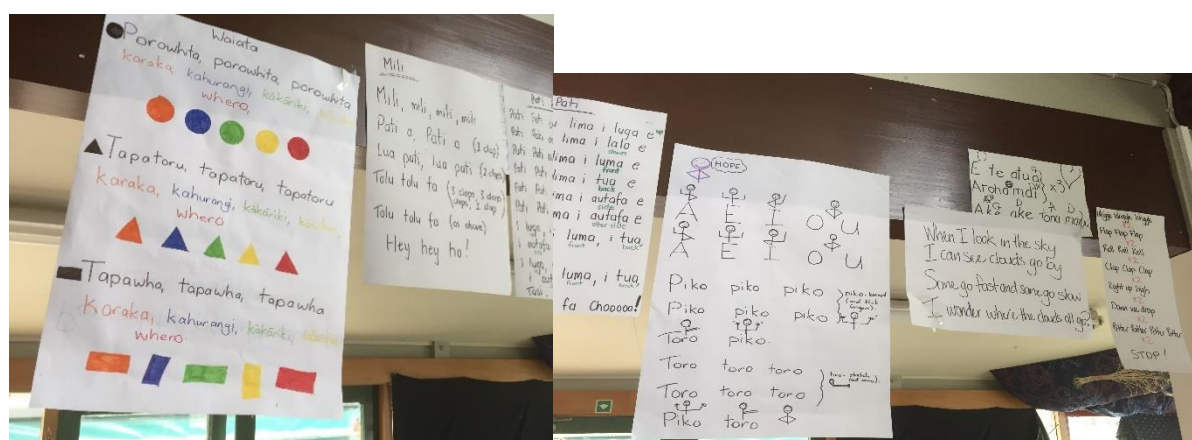 Waiata
Porowhita, porowhita, porowhita
karaka, kahurangi, kākāriki,
whero,
Tapatoru, tapatoru, tapatoru
karaka, kahurangi, kākāriki,
whero
Tapawha, tapawha, tapawha
Karaka, kahurangi, kākāriki,
whero.
Mili
Mili, mili, mili, mili
Pati a, Pati a (1 clap)
Lua pati, lua pati (2 claps)
Tolu tolu fa (3 claps, 3 claps
Tolu tolu fa (as above)
Hey hey ho!
Pati Pati
lima i luga e up
lima i lalo e
down
lima i luma e
front
lima i tua e
back
lima i autafa e
side
autafa e
other side
luma, i tua
front back
luma, i tua
front back
fa Chooooo!
HOPE
A E I O U
A E I O U
Piko piko piko
Piko piko piko
Toro piko.
Toro toro toro
Toro toro toro
Piko toro
E te atua
Arohamai x3
Ake ake tonu
When I look in the sky
I can see clouds go by
Some go fast and some go slow
I wonder where the clouds all go?
Wiggle Wiggle Wiggle
x2
Flap Flap Flap
x2
Roll Roll Roll
x2
Clap Clap Clap
x2
Right up high
x2
Down we drop
x2
Pitter Patter Pitter Patter
x2
STOP!